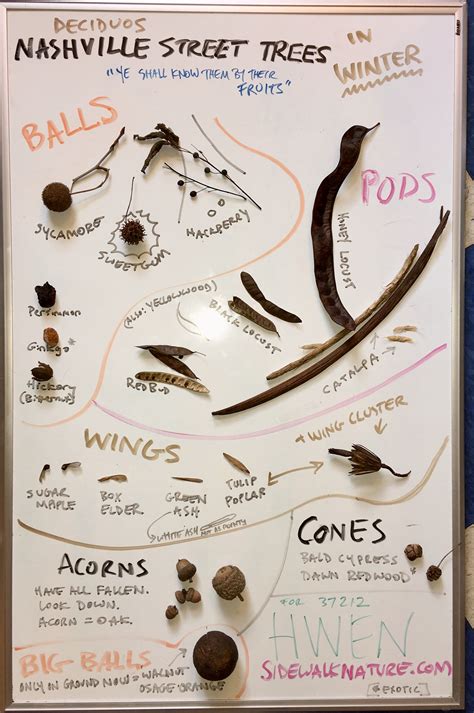 DECIDUOS
NASHVILLE STREET TREES
IN
WINTER
"YE SHALL KNOW THEM BY THEIR
FRUITS"
BALLS
PODS
SYCAMORE
SWEETGUM
HACKBERRY
HONEY LOCUST
Persimmon
Ginkgo*
Hickory
(Bitternut)
(ALSO: YELLOWWOOD)
BLACK LOCUST
REDBUD
CATALPA
WINGS
+ WING CLUSTER
SUGAR
MAPLE
BOX
ELDER
GREEN
ASH
TULIP
POPLAR
WHITE ASH NOT AS POINTY
CONES
BALD CYPRESS
DAWN REDWOOD*
ACORNS
HAVE ALL FALLEN.
LOOK DOWN.
ACORN = OAK.
BIG BALLS
ONLY IN GROUND NOW = WALNUT
OSAGE ORANGE
FOR 37212
HWEN
SIDEWALKNATURE.COM
(* EXOTIC)